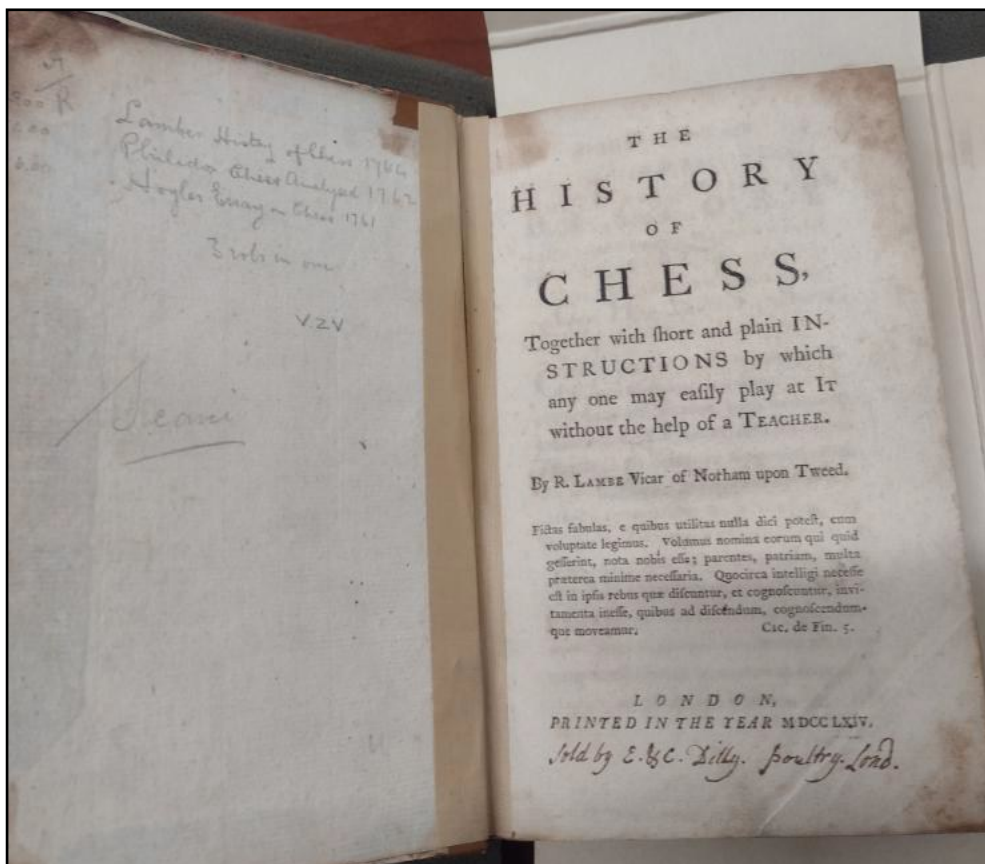 R
Lambes History of Chess 1764
Philidor Chess Analyzed 1762
Hoyles Essay on Chess 1761
3 vols in one
VZV
THE
HISTORY
OF
CHESS,
Together with ſhort and plain IN-
STRUCTIONS by which
any one may eaſily play at IT
without the help of a TEACHER.
By R. LAMBE Vicar of Norham upon Tweed.
Fictas fabulas, e quibus utilitas nulla dici poteſt, cum
voluptate legimus. Volumus nomina eorum qui quid
geſſerint, nota nobis eſſe; parentes, patriam, multa
præterea minime neceſſaria. Quocirca intelligi neceſſe
eſt in ipſis rebus quæ diſcuntur, et cognoſcuntur, invi-
tamenta ineſſe, quibus ad diſcendum, cognoſcendum-
que moveamur. CIC. de Fin. 5.
LONDON,
PRINTED IN THE YEAR MDCCLXIV.
Sold by E. & C. Dilly. Poultry. Lond.